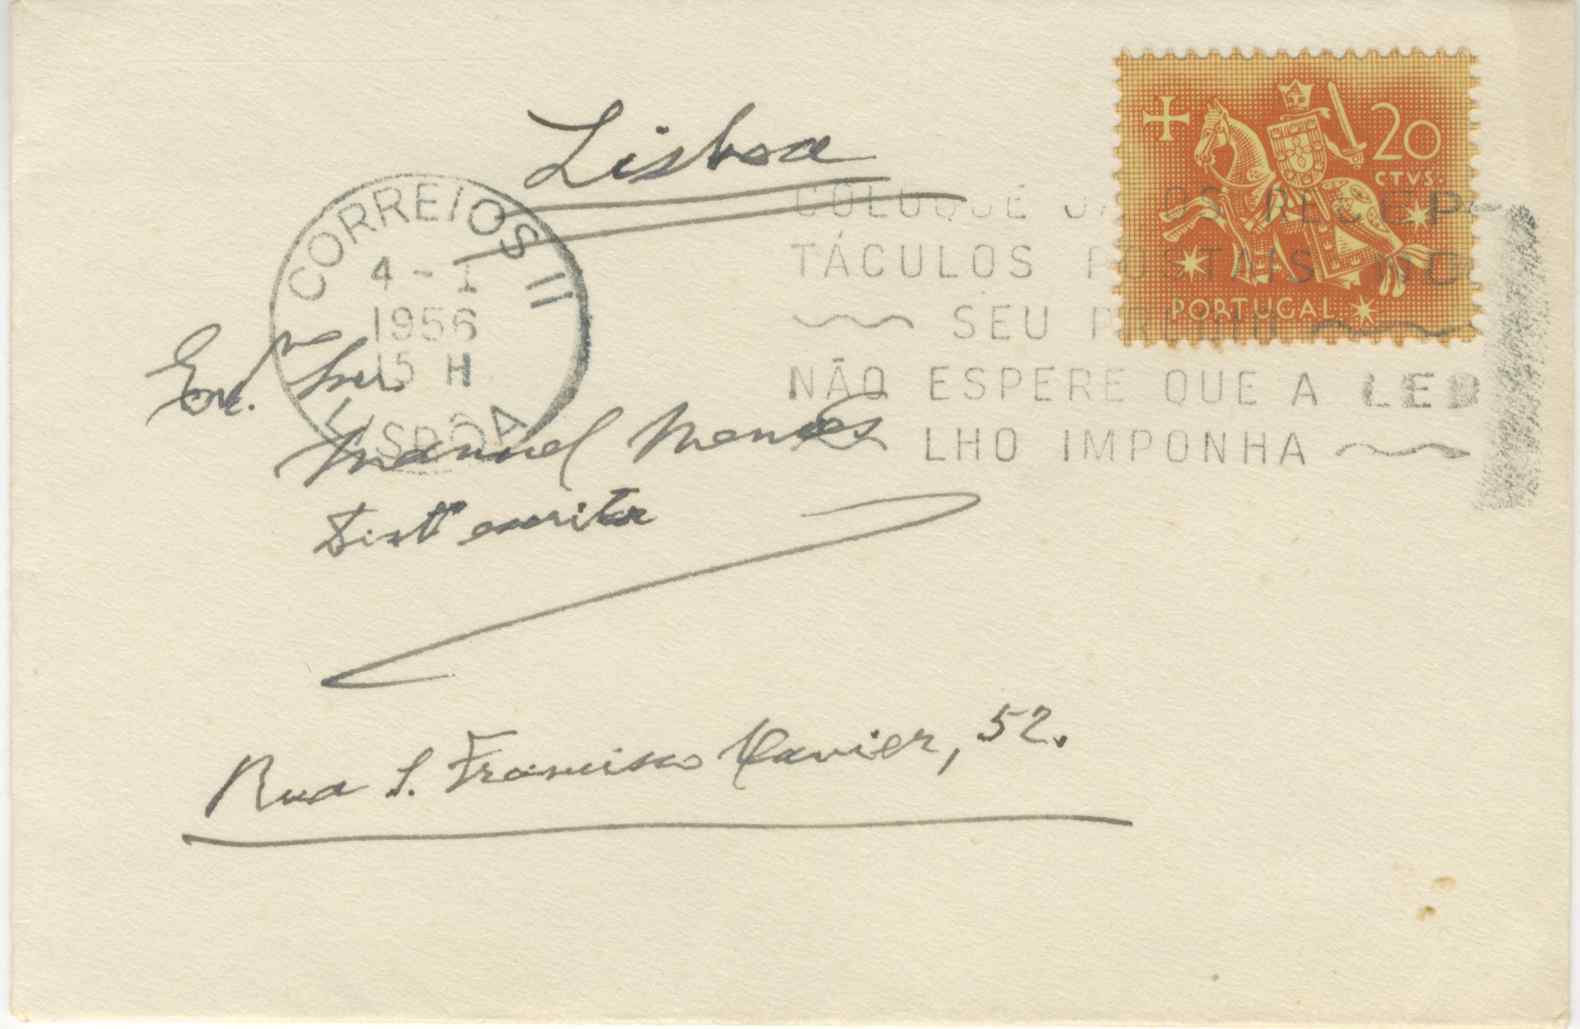 Lisboa
20
CTVS.
PORTUGAL
CORREIOS II
4 - I
1956
15 H
LISBOA
COLOQUE JÁ OS RECEP-
TÁCULOS POSTAIS NO
SEU PRÉDIO
NÃO ESPERE QUE A LEI
LHO IMPONHA
Exmo. Snr.
Manuel Mendes
Distº escritor
Rua S. Francisco Xavier, 52.